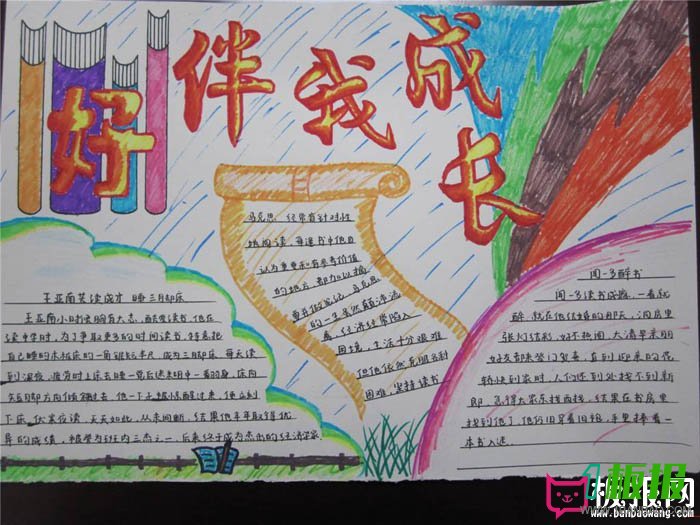 好
伴我成长
王亚南苦读成才 睡三月却床
王亚南小时候胸有大志，酷爱读书，他在
读中学时，为了争取更多的时间读书，特意把
自己睡的木板床的一条脚锯短半尺，成为三脚床，每天读
到深夜，疲劳时上床去睡一觉后迷糊中一翻身，床向
短脚方向倾斜过去，他一下子被惊醒过来，便立刻
下床，伏案夜读，天天如此，从未间断，结果他年年取得优
异的成绩，被誉为班内三杰之一，后来终于成为杰出的经济学家
马克思 经常有针对性
地阅读，每逢书中他自
认为重要和有参考价值
的地方，都加以摘
要并做笔记，马克思
的一生虽然颠沛流
离，经济经常陷入
困境，生活十分艰难
但他依然克服各种
困难，坚持读书
闻一多醉书
闻一多读书成瘾，一看就
醉，就在他结婚的那天，洞房里
张灯结彩，好不热闹，大清早亲朋
好友都来登门贺喜，直到迎亲的花
轿快到家时，人们还到处找不到新
郎，急得大家东找西找，结果在书房里
找到了他，他仍旧穿着旧袍，手里捧着一
本书入迷。
板报
板报网
www.banbaowang.com